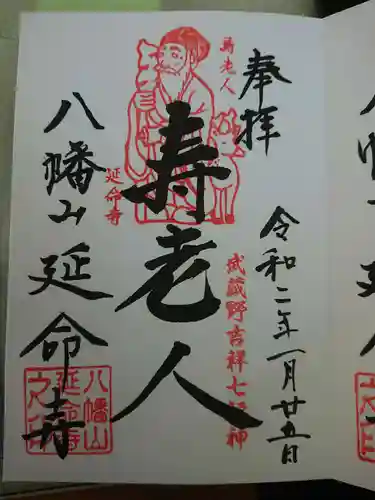 奉拝
寿老人
令和二年一月廿五日
武蔵野吉祥七福神
寿老人
延命寺
八幡山延命寺
八幡山
延命寺
之印